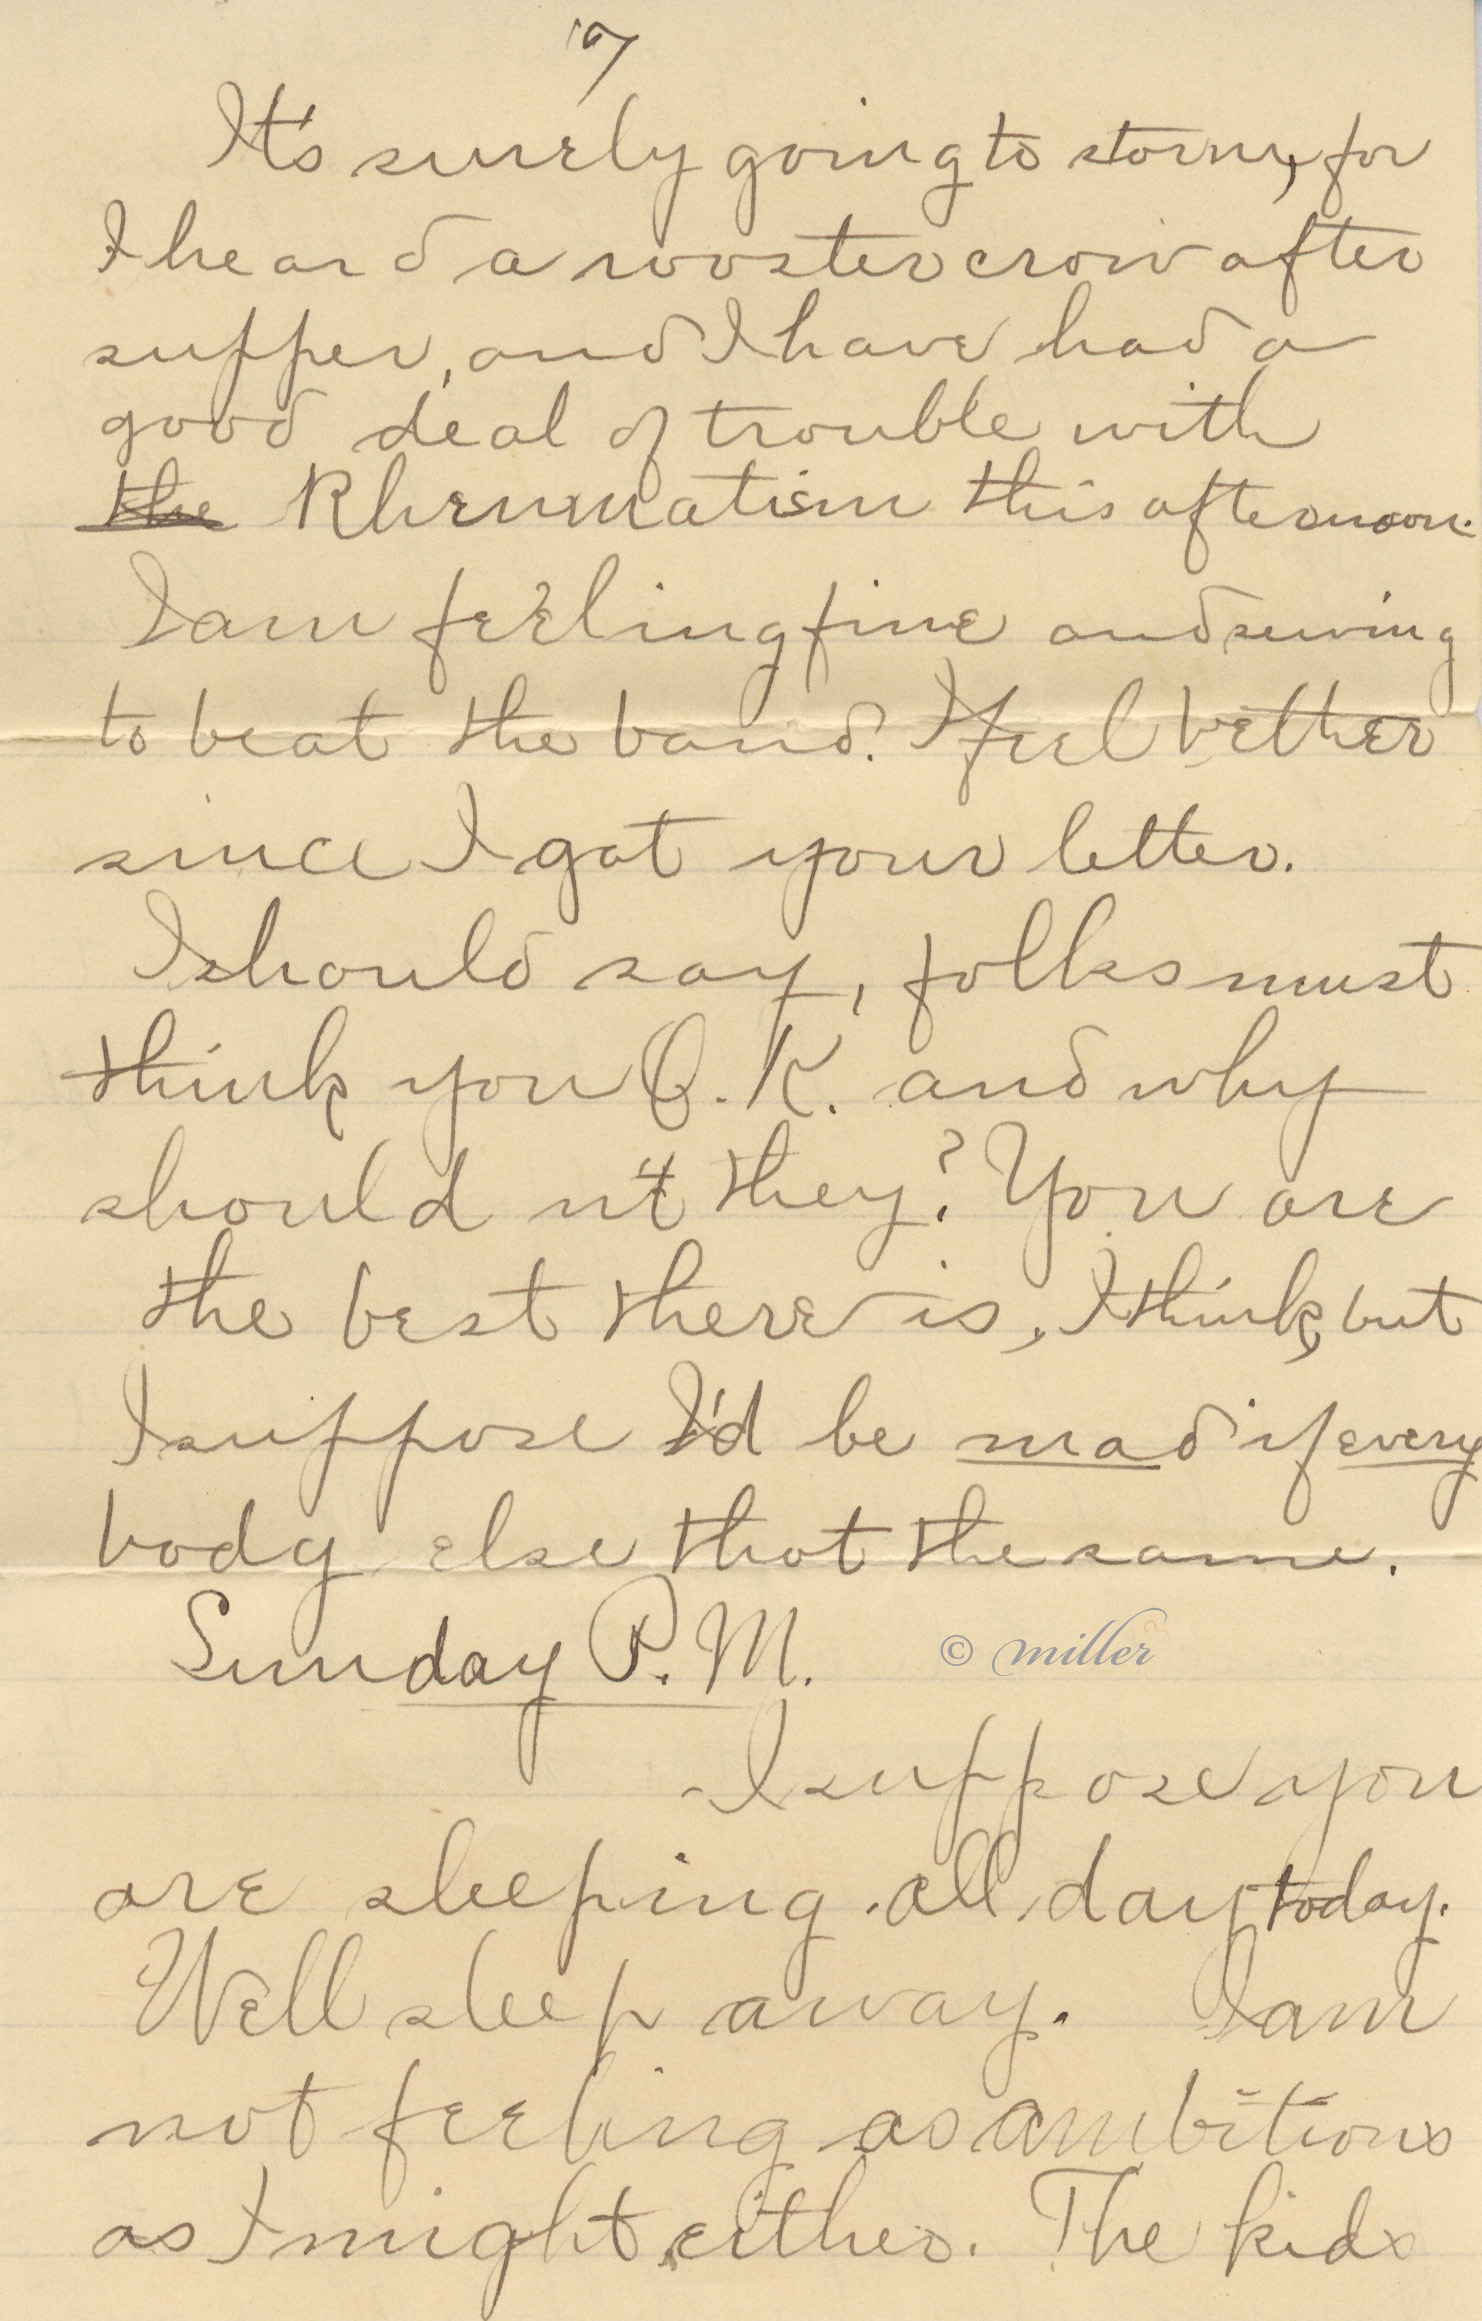 It's surely going to storm, for
I heard a rooster crow after
supper, and I have had a
good deal of trouble with
the Rheumatism this afternoon.
I am feeling fine and sewing
to beat the band. I feel better
since I got your letter.
I should say, folks must
think you O.K. and why
should n't they? You are
the best there is, I think, but
I suppose I'd be mad if every
body else that the same.
Sunday P.M.
© miller
I suppose you
are sleeping all day today.
Well sleep away. I am
not feeling as ambitious
as I might either. The kids